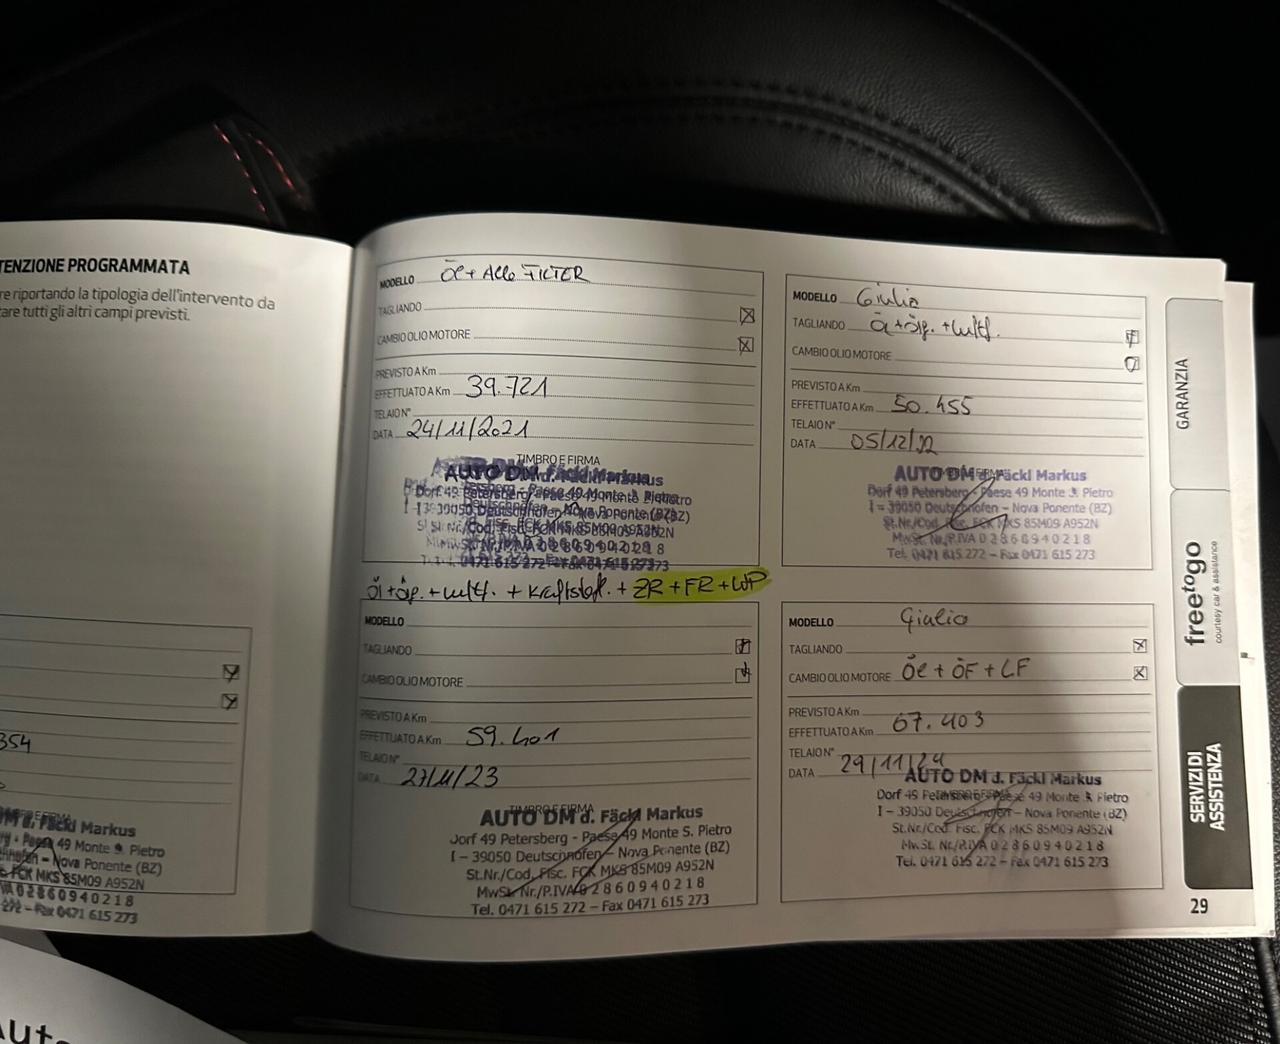 TENZIONE PROGRAMMATA
re riportando la tipologia dell'intervento da
tare tutti gli altri campi previsti.
354
Fäckl Markus
49 Monte S. Pietro
Nova Ponente (BZ)
FCK MKS 85M09 A952N
02860940218
272 – Fax 0471 615 273
MODELLO Öl + Alle FILTER
TAGLIANDO
CAMBIO OLIO MOTORE
PREVISTO A Km
EFFETTUATO A Km 39.721
TELAIO N°
DATA 24/11/2021
TIMBRO E FIRMA
AUTO DM d. Fäckl Markus
Dorf 49 Petersberg - Paese 49 Monte S. Pietro
I – 39050 Deutschnofen – Nova Ponente (BZ)
St.Nr./Cod. Fisc. FCK MKS 85M09 A952N
MwSt. Nr./P.IVA 02860940218
Tel. 0471 615 272 – Fax 0471 615 273
Öl + ölf. + Luftf. + Kraftstoff. + ZR + FR + WP
MODELLO
TAGLIANDO
CAMBIO OLIO MOTORE
PREVISTO A Km
EFFETTUATO A Km 59.401
TELAIO N°
DATA 27/11/23
TIMBRO E FIRMA
AUTO DM d. Fäckl Markus
Dorf 49 Petersberg - Paese 49 Monte S. Pietro
I – 39050 Deutschnofen – Nova Ponente (BZ)
St.Nr./Cod. Fisc. FCK MKS 85M09 A952N
MwSt. Nr./P.IVA 02860940218
Tel. 0471 615 272 – Fax 0471 615 273
MODELLO Giulia
TAGLIANDO Öl + ölf. + Luftf.
CAMBIO OLIO MOTORE
PREVISTO A Km
EFFETTUATO A Km 50.455
TELAIO N°
DATA 05/12/22
AUTO DM d. Fäckl Markus
Dorf 49 Petersberg - Paese 49 Monte S. Pietro
I – 39050 Deutschnofen – Nova Ponente (BZ)
St.Nr./Cod. Fisc. FCK MKS 85M09 A952N
MwSt. Nr./P.IVA 02860940218
Tel. 0471 615 272 – Fax 0471 615 273
MODELLO Giulia
TAGLIANDO
CAMBIO OLIO MOTORE Öl + ÖF + LF
PREVISTO A Km
EFFETTUATO A Km 67.403
TELAIO N°
DATA 29/11/24
AUTO DM d. Fäckl Markus
Dorf 49 Petersberg - Paese 49 Monte S. Pietro
I – 39050 Deutschnofen – Nova Ponente (BZ)
St.Nr./Cod. Fisc. FCK MKS 85M09 A952N
MwSt. Nr./P.IVA 02860940218
Tel. 0471 615 272 – Fax 0471 615 273
GARANZIA
freetogo
courtesy car & assistance
SERVIZI DI
ASSISTENZA
29